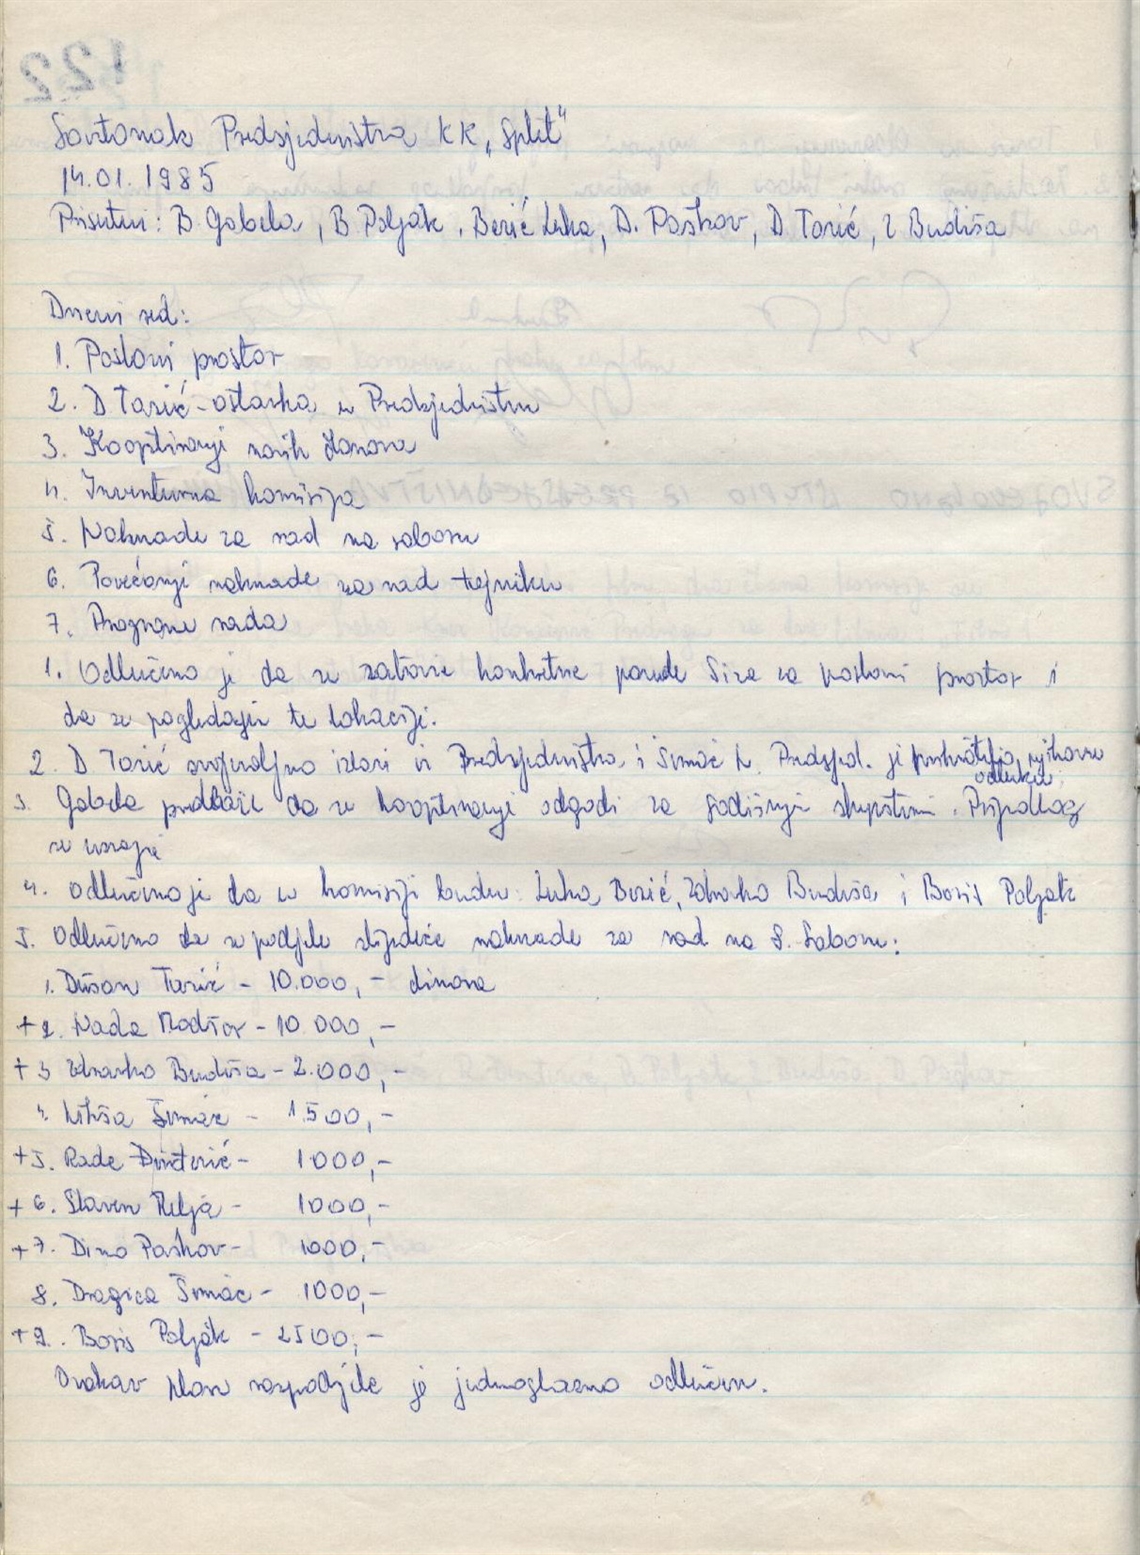 Sastanak Predsjedništva KK „Split"
14.01.1985
Prisutni: B. Gabela, B Poljak, Berić Luka, D. Paškov, D Tarić, Z Budiša
Dnevni red:
1. Poslovni prostor
2. D Tarić - ostavka u Predsjedništvu
3. Kooptiranje novih članova
4. Inventurna komisija
5. Naknade za rad na saboru
6. Povećanje naknade za rad tajniku
7. Program rada
1. Odlučeno je da se zatraže konkretne ponude Siza za poslovni prostor i
da se pogledaju te lokacije.
2. D Tarić svojevoljno izlazi iz Predsjedništva i Šimac L. Predsjed. je prihvatilo njihovu
odluku.
3. Gabela predlaže da se kooptiranje odgodi za godišnju skupštinu. Prijedlog
se usvaja
4. Odlučeno je da u komisiji budu: Luka Berić, Zdravko Budiša i Boris Poljak
5. Odlučeno da se podjele slijedeće naknade za rad na 8. Saboru:
1. Dušan Tarić - 10.000,- dinara
+2. Nada - 10 000,-
+3 Zdravko Budiša - 2.000,-
4. Šimac - 1.500,-
+5. Rade - 1000,-
+6. Slaven Relja - 1000,-
+7. Dino Paškov - 1000,-
8. Dragica Šimac - 1000,-
+9. Boris Poljak - 2500,-
Ovakav plan raspodjele je jednoglasno odlučen.